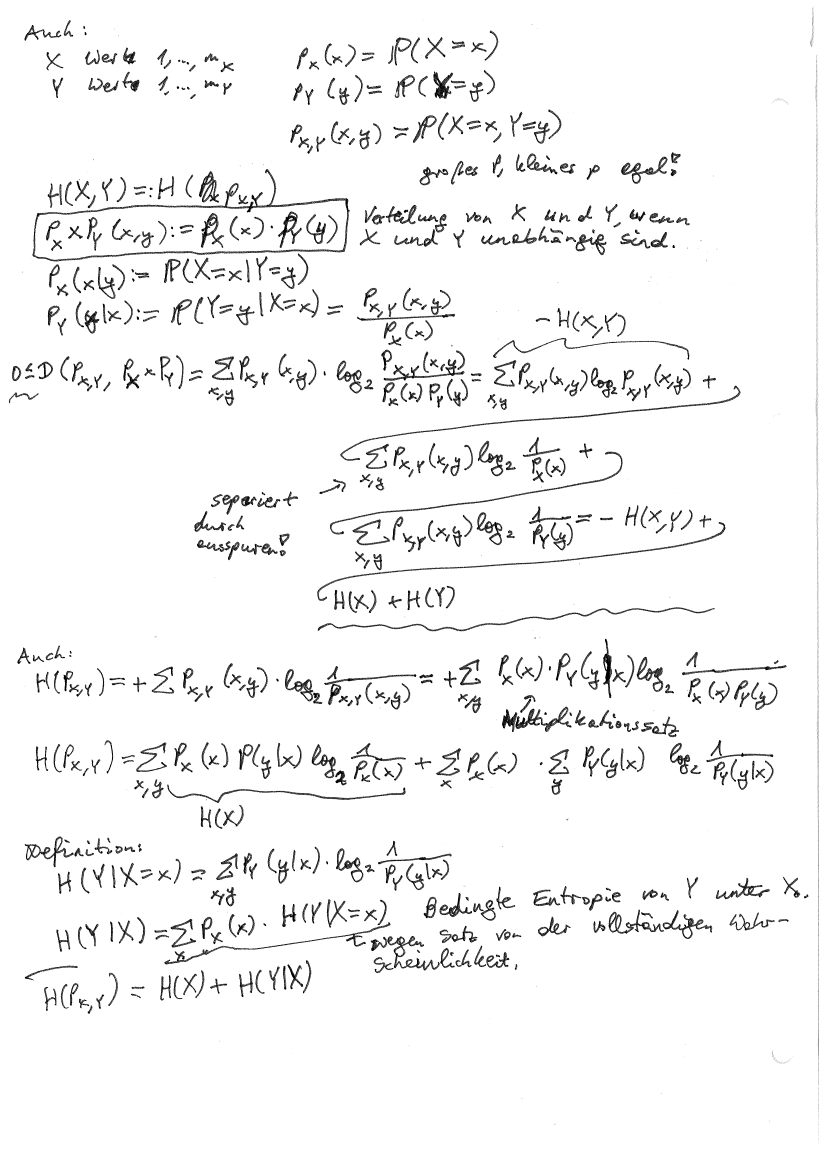 Auch:
X Werte 1,..., m_X     P_X(x) = ℙ(X=x)
Y Werte 1,..., m_Y     P_Y(y) = ℙ(Y=y)
P_{X,Y}(x,y) = ℙ(X=x, Y=y)
großes P, kleines p egal!
H(X,Y) =: H(P_{X,Y})
P_X × P_Y (x,y) := P_X(x) · P_Y(y)     Verteilung von X und Y, wenn
X und Y unabhängig sind.
P_X(x|y) := ℙ(X=x|Y=y)
P_Y(y|x) := ℙ(Y=y|X=x) = P_{X,Y}(x,y) / P_X(x)
- H(X,Y)
0 ≤ D(P_{X,Y}, P_X × P_Y) = Σ_{x,y} P_{X,Y}(x,y) · log_2 P_{X,Y}(x,y) / P_X(x) P_Y(y) = Σ_{x,y} P_{X,Y}(x,y) log_2 P_{X,Y}(x,y) +
Σ_{x,y} P_{X,Y}(x,y) log_2 1/P_X(x) +
separiert
durch
ausspuren!
Σ_{x,y} P_{X,Y}(x,y) log_2 1/P_Y(y) = - H(X,Y) +
H(X) + H(Y)
Auch:
H(P_{X,Y}) = + Σ P_{X,Y}(x,y) · log_2 1/P_{X,Y}(x,y) = + Σ_{x,y} P_X(x) · P_Y(y|x) log_2 1/P_X(x) P_Y(y)
Multiplikationssatz
H(P_{X,Y}) = Σ_{x,y} P_X(x) P(y|x) log_2 1/P_X(x) + Σ_x P_X(x) · Σ_y P_Y(y|x) log_2 1/P_Y(y|x)
H(X)
Definition:
H(Y|X=x) = Σ_{x,y} P_Y(y|x) · log_2 1/P_Y(y|x)
H(Y|X) = Σ_x P_X(x) · H(Y|X=x)     Bedingte Entropie von Y unter X.
wegen Satz von der vollständigen Wahr-
scheinlichkeit.
H(P_{X,Y}) = H(X) + H(Y|X)